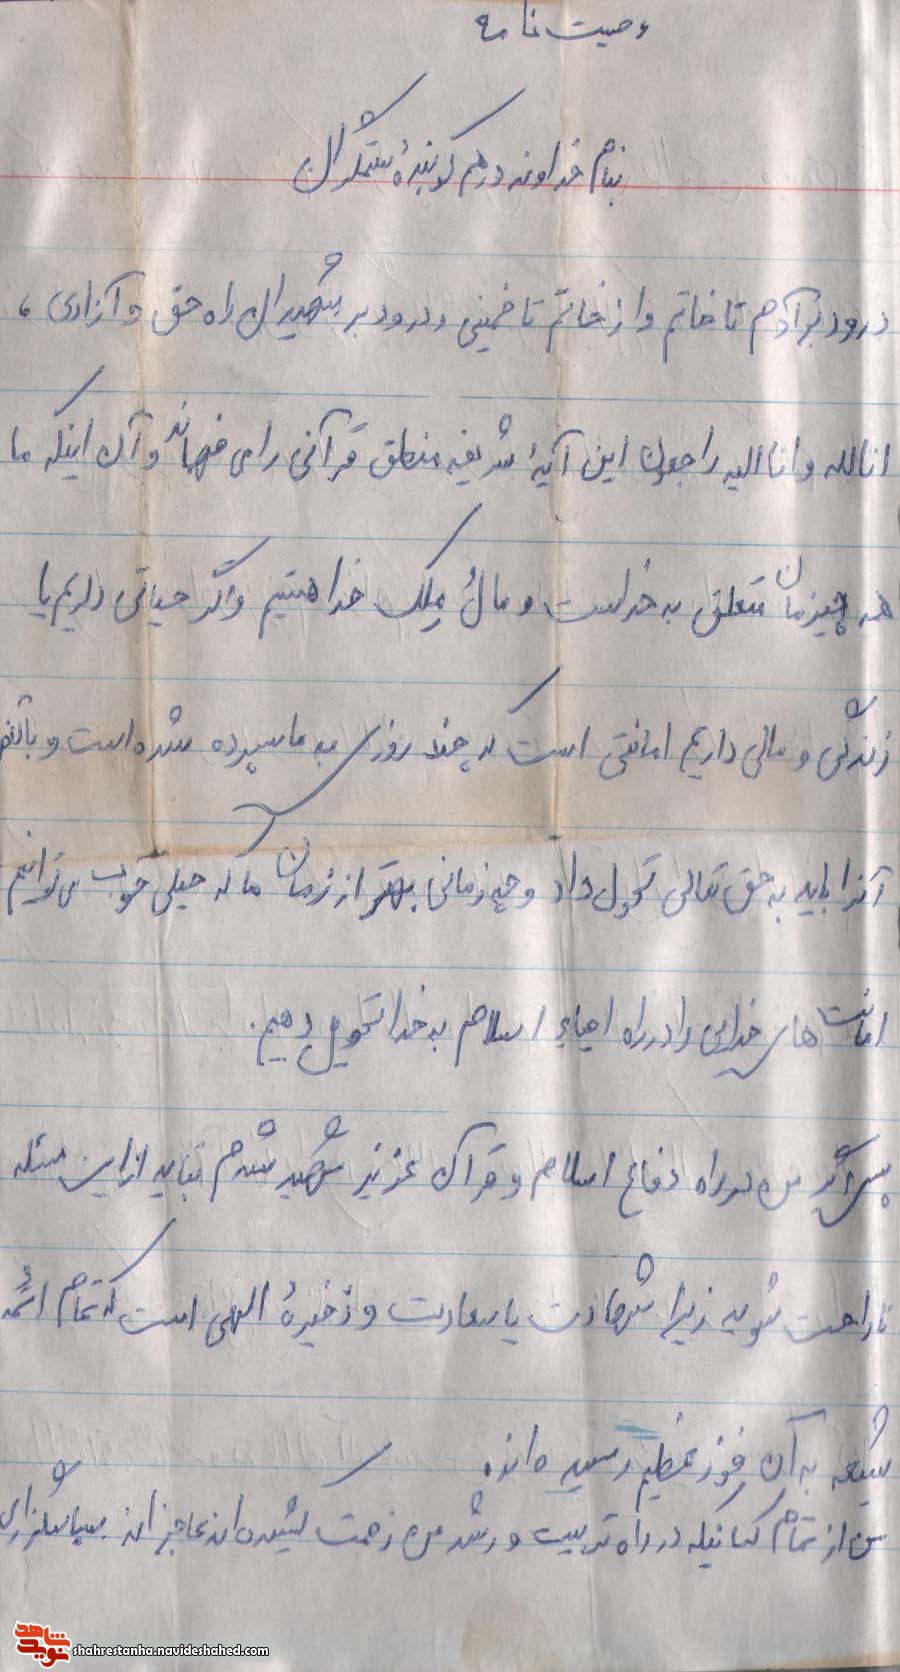 وصیت نامه
بنام خداوند درهم کوبندهٔ ستمگران
درود بر آدم تا خاتم و از خاتم تا خمینی و درود بر شهیدان راه حق و آزادی ،
انالله و انا الیه راجعون این آیهٔ شریفه منطق قرآنی را می فهماند و آن اینکه ما
همه چیزمان متعلق به خداست و مال و ملک خدا هستیم و اگر حیاتی داریم یا
زندگی و مالی داریم امانتی است که چند روزی به ما سپرده شده است و بالنتیجه
آنرا باید به حق تعالی تحویل داد و چه زمانی بهتر از زمان ما که خیلی خوب می توانیم
امانت های خدایی را در راه احیاء اسلام به خدا تحویل دهیم.
پس اگر من در راه دفاع اسلام و قرآن عزیز شهید شدم نباید از این مسئله
ناراحت شوید زیرا شهادت یا سعادت و ذخیرهٔ الهی است که تمام ائمه
شیعه به آن فوز عظیم رسیده اند
من از تمام کسانیکه در راه تربیت و رشد من زحمت کشیده اند عاجزانه سپاسگزاری
نوید شاهد
shahrestanha.navideshahed.com